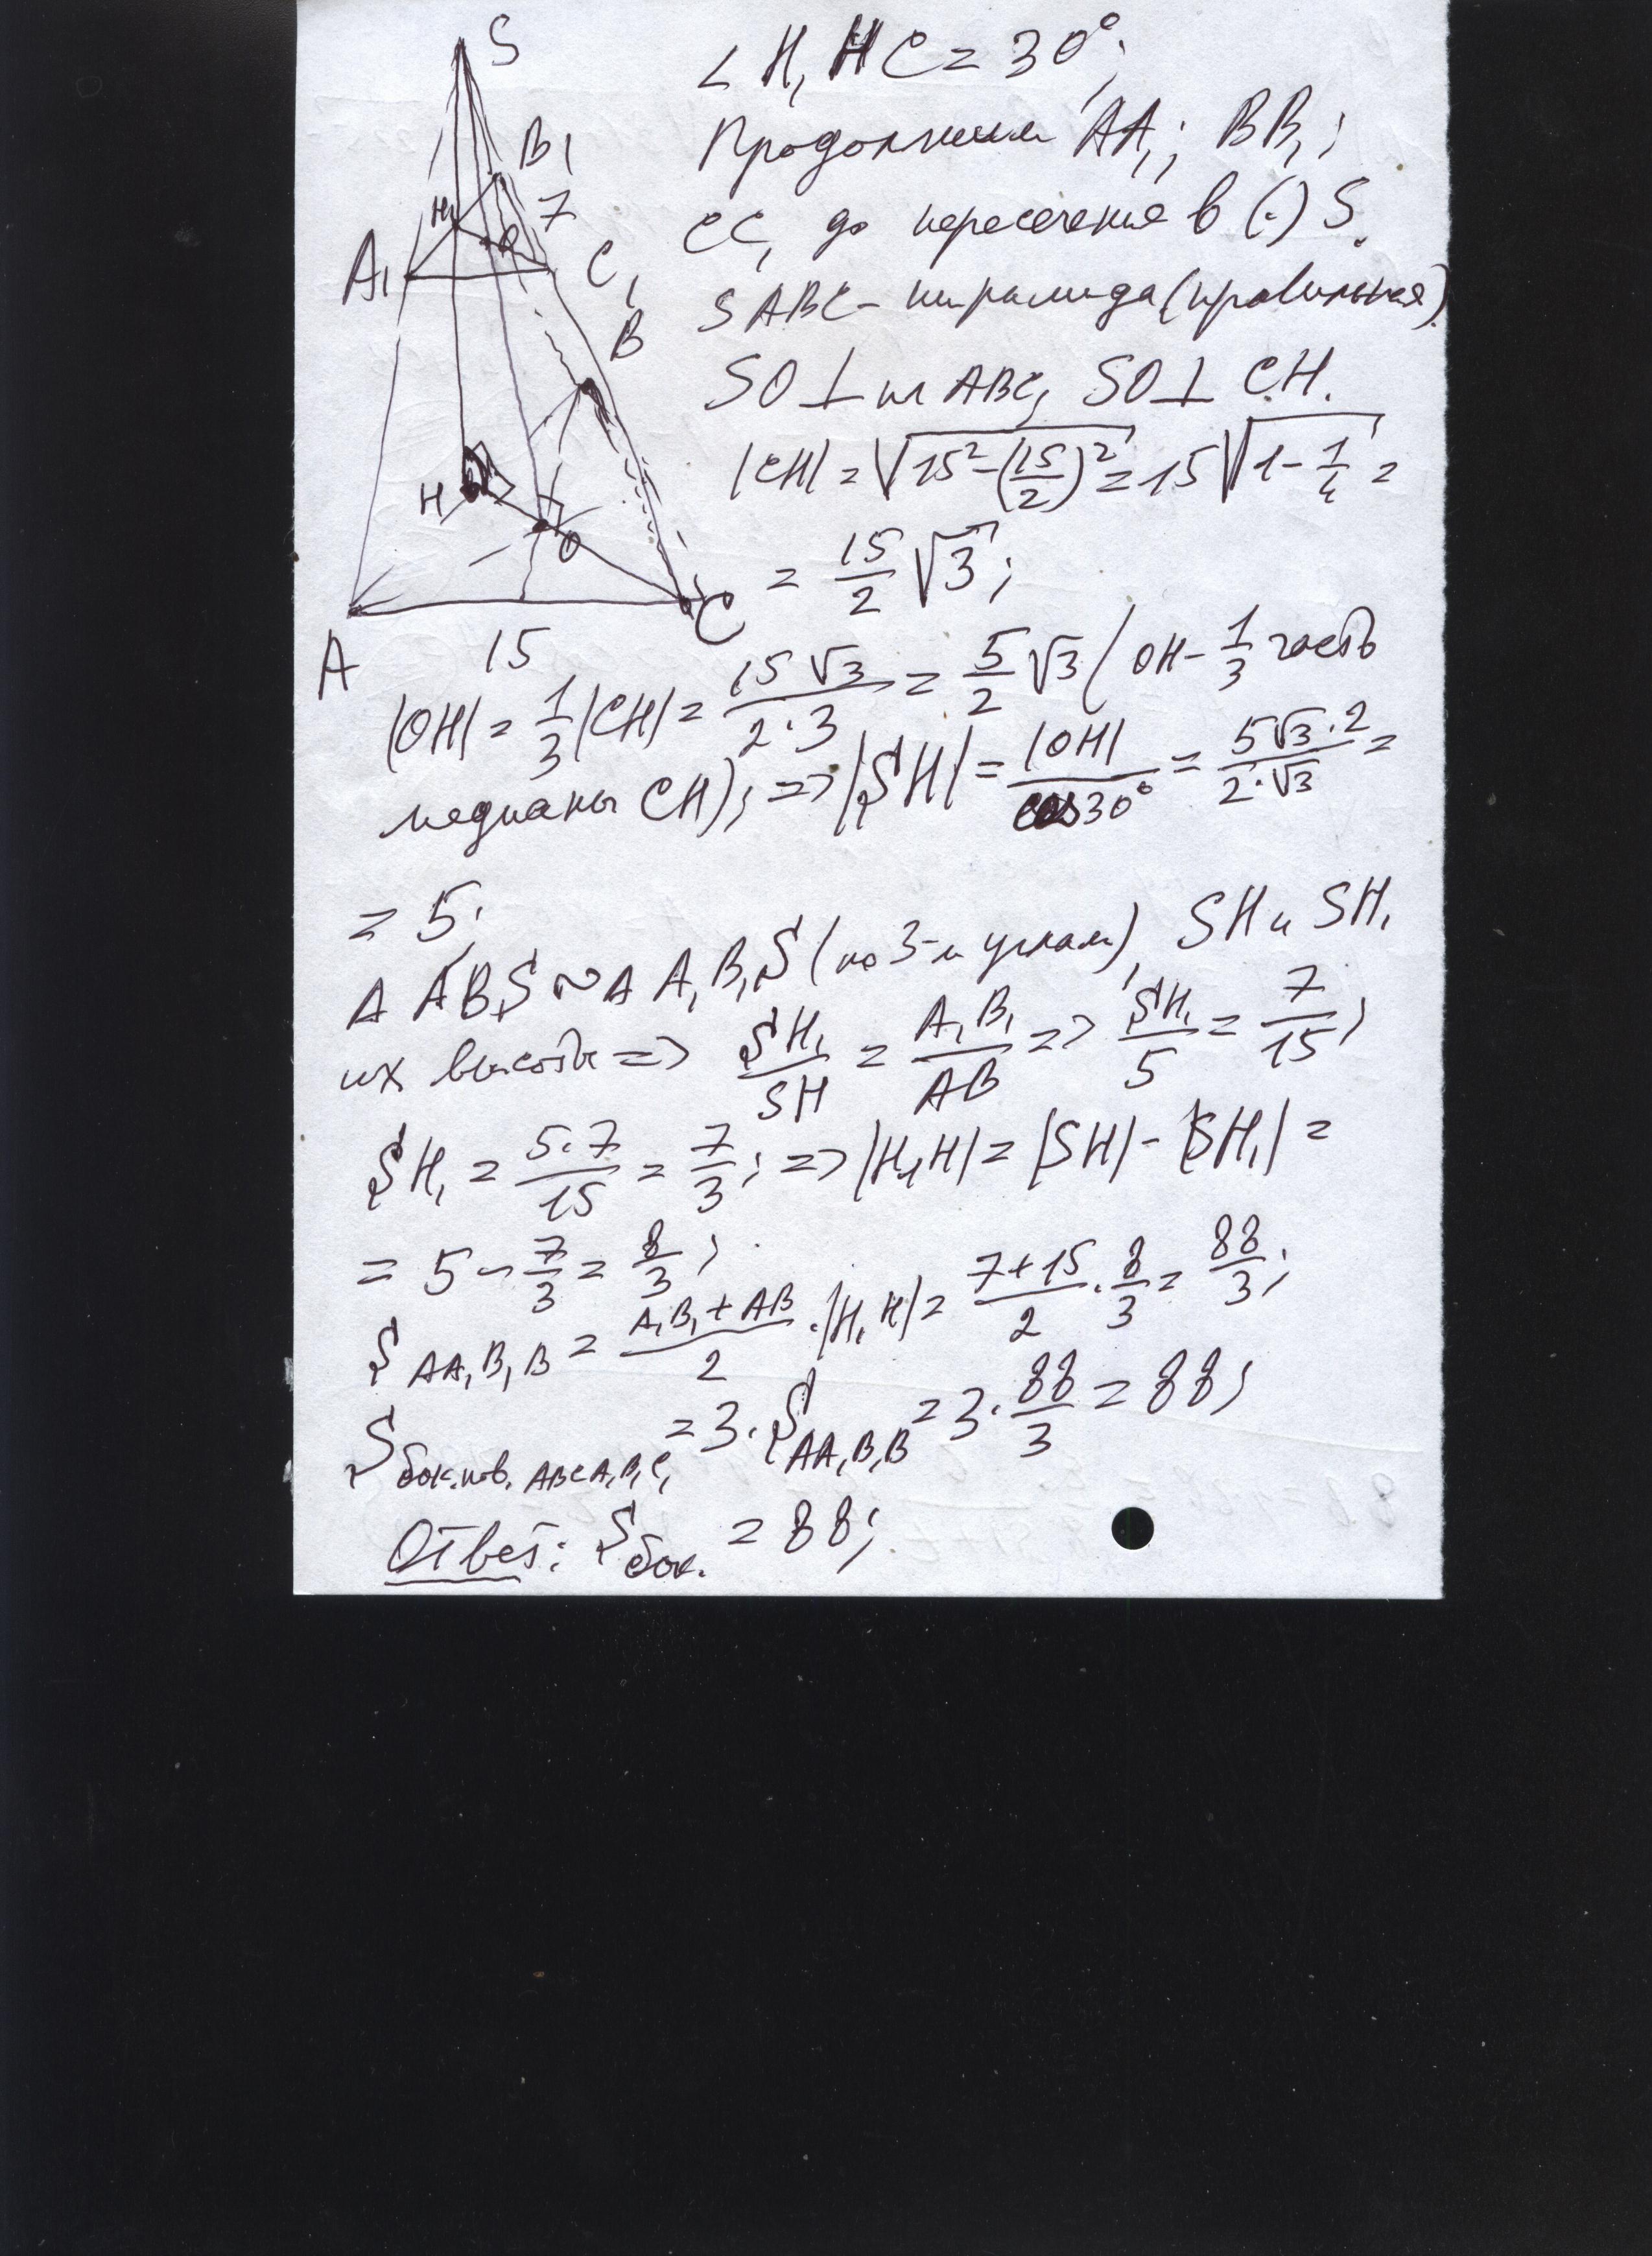 S
B₁
H₁
7
O₁
A₁
C₁
B
H
O
A
C
15
∠ H₁HC = 30°;
Продолжим AA₁; BB₁;
CC₁ до пересечения в (·) S.
SABC - пирамида (правильная).
SO ⊥ пл ABC, SO ⊥ CH.
|CH| = √(15² - (15/2)²) = 15√(1 - 1/4) =
= 15/2 √3;
|OH| = 1/3 |CH| = 15√3/(2·3) = 5/2 √3 (OH - 1/3 часть
медианы CH); => |SH| = |OH|/cos30° = 5√3·2/(2·√3) =
= 5;
Δ ABS ~ Δ A₁B₁S (по 3-м углам), SH и SH₁
их высоты => SH₁/SH = A₁B₁/AB => SH₁/5 = 7/15;
SH₁ = 5·7/15 = 7/3; => |H₁H| = |SH| - |SH₁| =
= 5 - 7/3 = 8/3;
S AA₁B₁B = (A₁B₁ + AB)/2 · |H₁H| = (7+15)/2 · 8/3 = 88/3;
S бок.пов. ABCA₁B₁C₁ = 3·S AA₁B₁B = 3·88/3 = 88;
Ответ: S бок. = 88;